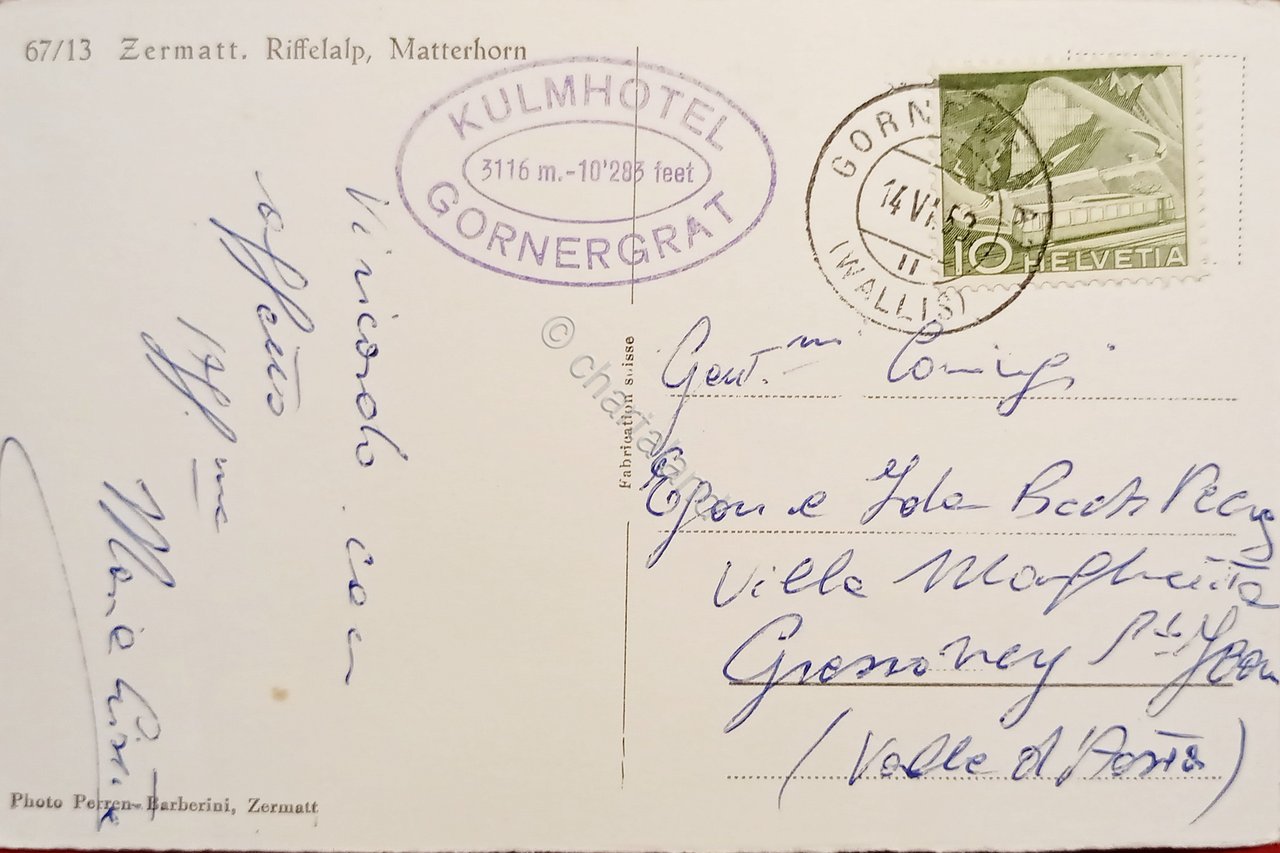 67/13 Zermatt. Riffelalp, Matterhorn
KULMHOTEL
3116 m.-10'283 feet
GORNERGRAT
GORNERGRAT
14 VII 53
(WALLIS)
10 HELVETIA
Vi ricordo con
affetto
Fabrication suisse
© chartaland
Gent.mi Coniugi
e Ida
Villa Margherita
Gressoney St Jean
(Valle d'Aosta)
Photo Perren-Barberini, Zermatt